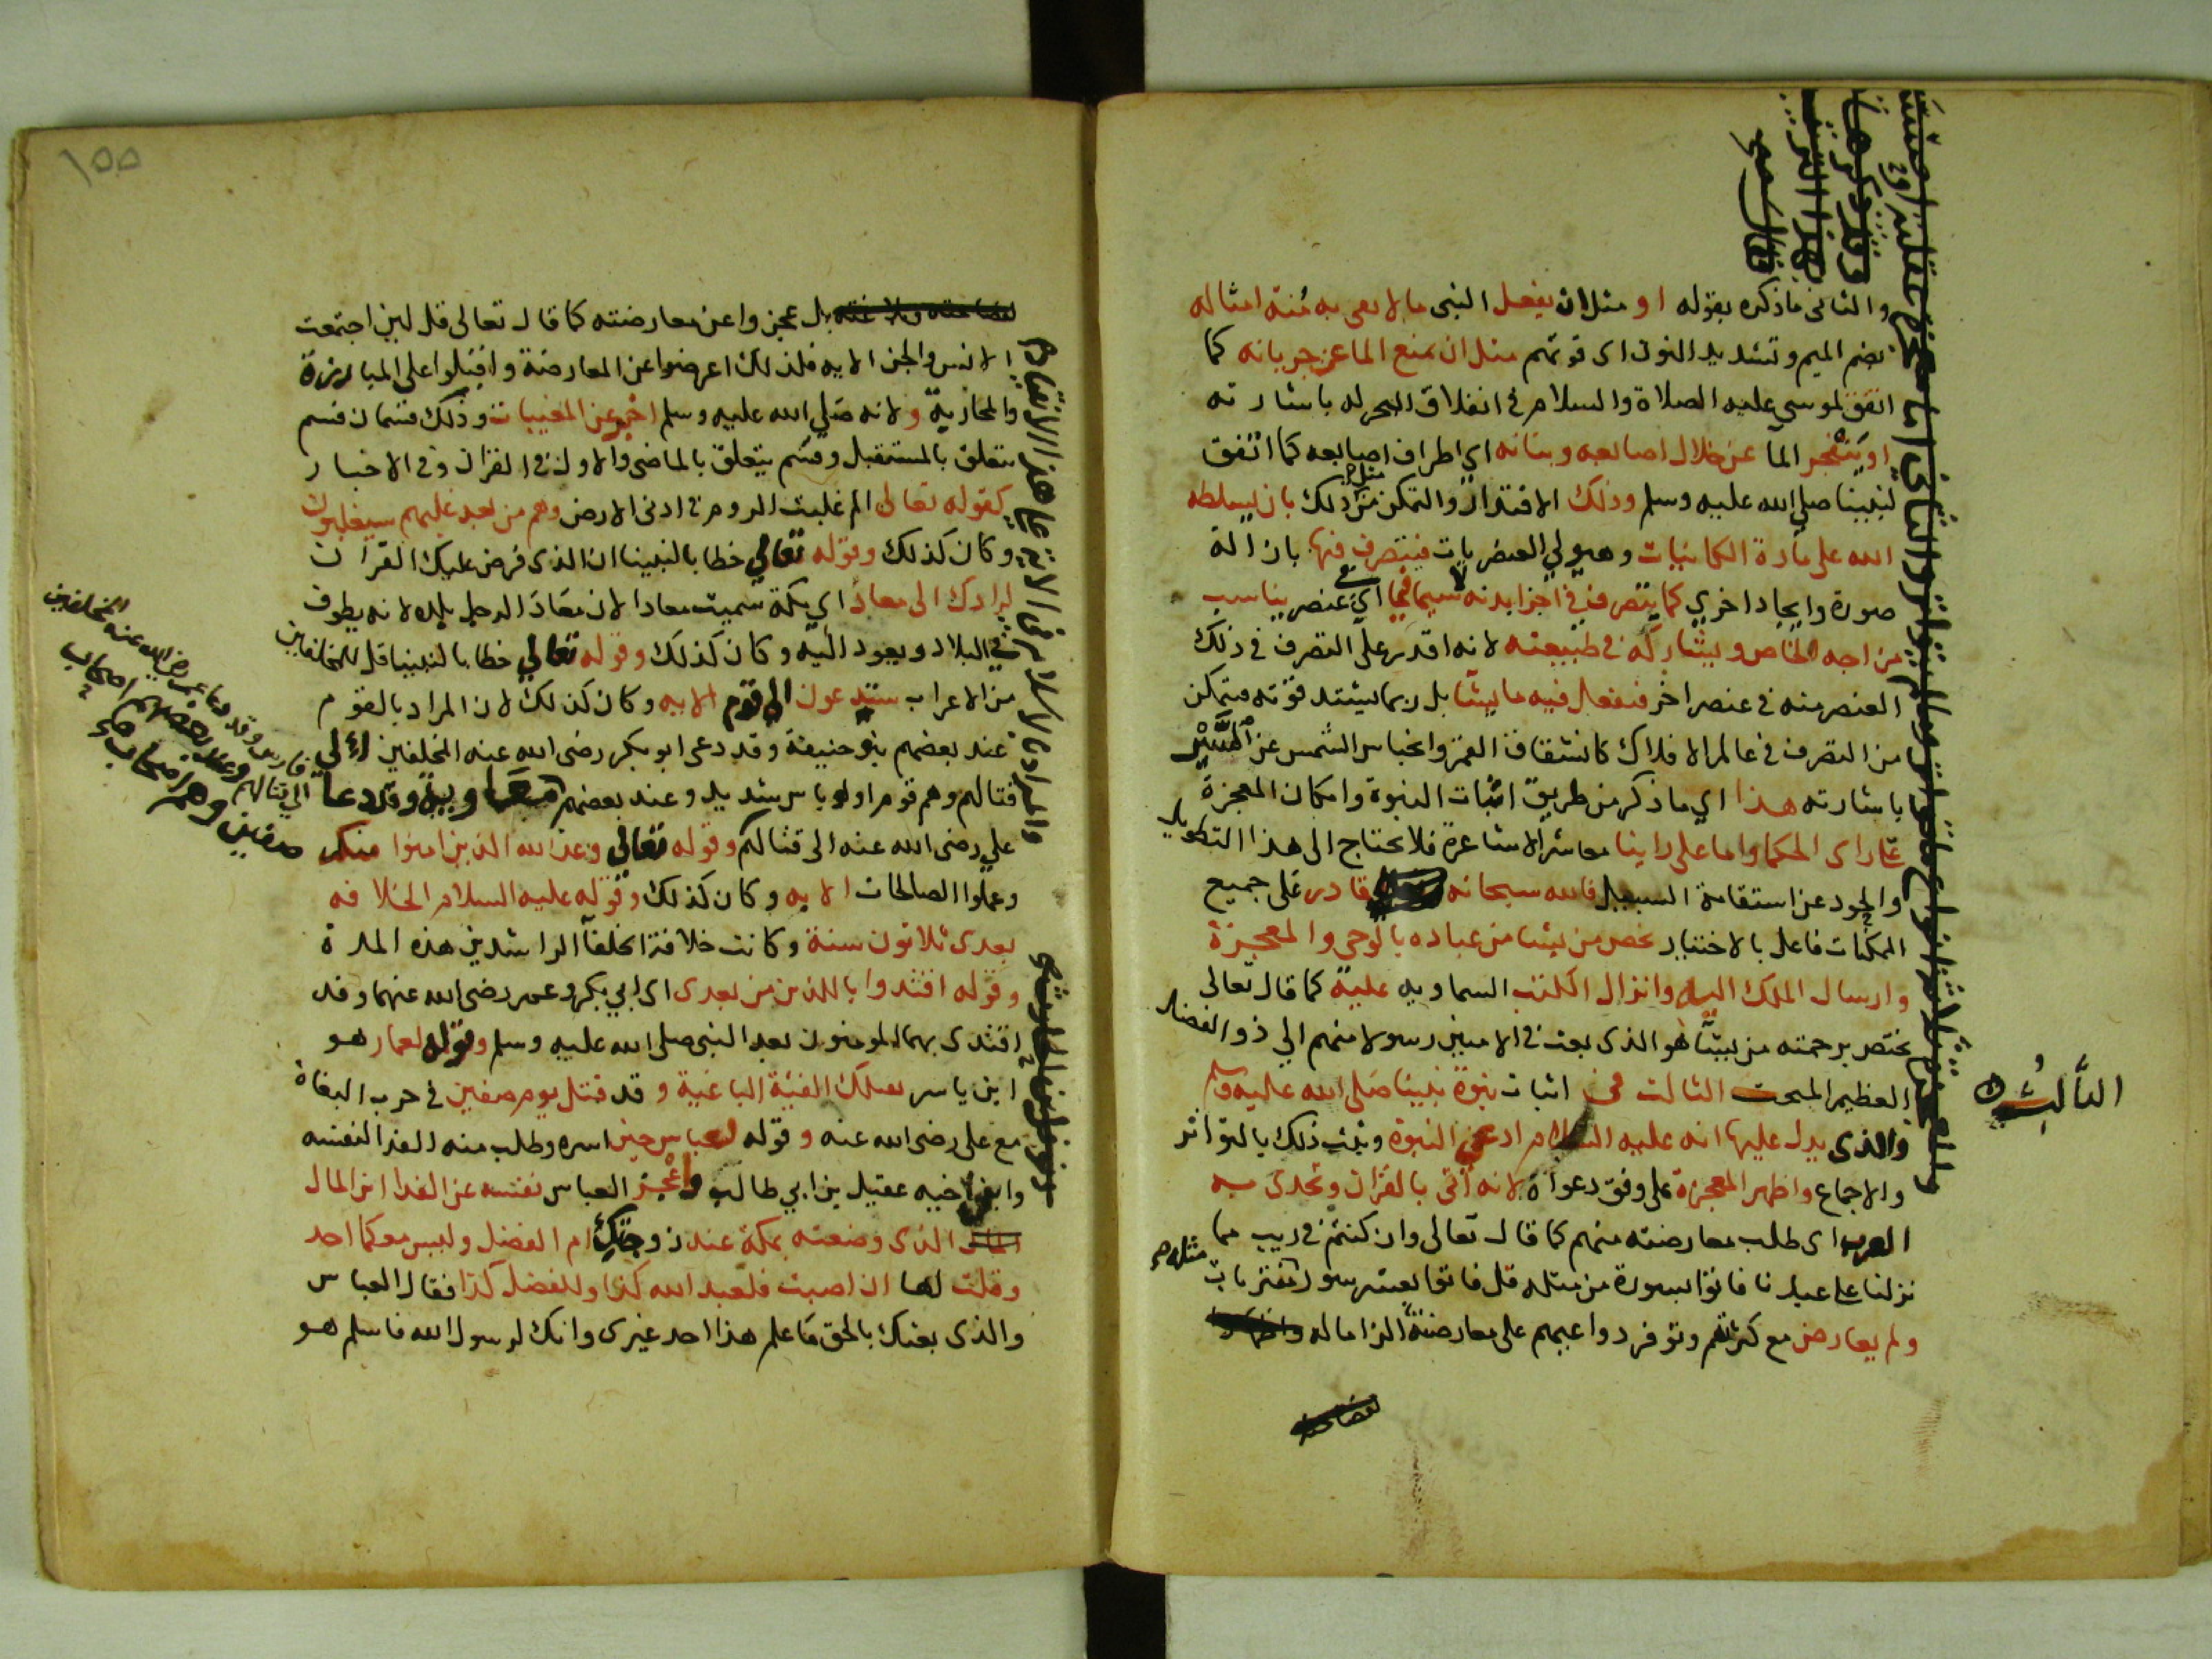 والثانى ماذكره بقوله او مثل ان يفعل النبى ما لا يعى به مُنة امثاله
بضم الميم وتشديد النون اى قوتهم مثل ان يمنع الما عن جريانه كما
اتفق لموسى عليه الصلاة والسلام فى انفلاق البحر له باشارته
او يتفجر الما عن خلال اصابعه وبنانه اي اطراف اصابعه كما اتفق
لنبينا صلى الله عليه وسلم وذلك الاقتدار والتمكن من مثل ذلك بان يسلطه
الله على مادة الكاينات وهيولي العنصريات فيتصرف فيها بازالة
صورة وايجاد اخري كما يتصرف في اجزا بدنه لا سيما فى اي عنصر يناسب
مزاجه الخاص ويشاركه فى طبيعته لانه اقدر على التصرف فى ذلك
العنصر منه فى عنصر اخر فيفعل فيه ما يشا بل ربما يشتد قوته فيتمكن
من التصرف فى عالم الافلاك كانشقاق القمر وانحباس الشمس عن السَّيْر
باشارته هذا اي ما ذكر من طريق اثبات النبوة وامكان المعجزة
على راى الحكما واما على راينا معاشر الاشاعرة فلا نحتاج الى هذا التطويل
والجود عن استقامة السبيل فالله سبحانه قادر على جميع
الممكنات فاعل بالاختيار يخص من يشا من عباده بالوحى والمعجزة
وارسال الملك اليه وانزال الكتب السماويه عليه كما قال تعالى
يختص برحمته من يشا هو الذى بعث فى الاميين رسولا منهم الي ذو الفضل
العظيم المبحث الثالث فى اثبات نبوة نبينا صلى الله عليه وسلم
الثَّالِثُ
والذى يدل عليها انه عليه السلام ادعى النبوة وثبت ذلك بالتواتر
والاجماع واظهر المعجزة على وفق دعواه لانه أتى بالقران وتحدى به
العرب اى طلب معارضته منهم كما قال تعالى وان كنتم فى ريب مما
نزلنا على عبدنا فاتوا بسورة من مثله قل فاتوا بعشر سور مثله مفتريات
ولم يعارض مع كثرتهم وتوفر دواعيهم على معارضته الزاما له
١٥٥
بل عجزوا عن معارضته كما قال تعالى قل لين اجتمعت
الانس والجن الايه فلذلك اعرضوا عن المعارضة واقبلوا على المبارزة
والمحاربة ولانه صلي الله عليه وسلم اخبر عن المغيبات وذلك قسمان قسم
يتعلق بالمستقبل وقسم يتعلق بالماضى والاول فى القران وفى الاخبار
كقوله تعالى الم غلبت الروم فى ادنى الارض وهم من بعد غلبهم سيغلبون
وكان كذلك وقوله تعالي خطابا لنبينا ان الذى فرض عليك القران
لرادك الى معاد اي مكة سميت معادا لان معاد الرجل بلده لانه يطوف
في البلاد ويعود اليه وكان كذلك وقوله تعالي خطابا لنبينا قل للمخلفين
من الاعراب ستدعون الي قوم الايه وكان كذلك لان المراد بالقوم
عند بعضهم بنو حنيفة وقد دعى ابو بكر رضى الله عنه المخلفين الي
قتالهم وهم قوم اولو باس شديد وعند بعضهم وقد دعا
علي رضى الله عنه الى قتالهم وقوله تعالي وعد الله الذين امنوا منكم
وعملوا الصالحات الايه وكان كذلك وقوله عليه السلام الخلافه
بعدى ثلاثون سنة وكانت خلافة الخلفا الراشدين هذه المدة
وقوله اقتدوا باللذين من بعدى اى ابي بكر وعمر رضى الله عنهما وقد
اقتدى بهما المومنون بعد النبى صلى الله عليه وسلم وقوله لعمار هو
ابن ياسر تقتلك الفئية الباغية وقد قتل يوم صفين في حرب البغاة
مع على رضى الله عنه وقوله لعباس حين اسره وطلب منه الفدا لنفسه
وابن اخيه عقيل بن ابي طالب واعجز العباس نفسه عن الفدا اين المال
الذى وضعته بمكة عند زوجتك ام الفضل وليس معكما احد
وقلت لها ان اصبت فلعبد الله كذا وللفضل كذا فقال العباس
والذى بعثك بالحق ما علم هذا احد غيرى وانك لرسول الله فاسلم هو